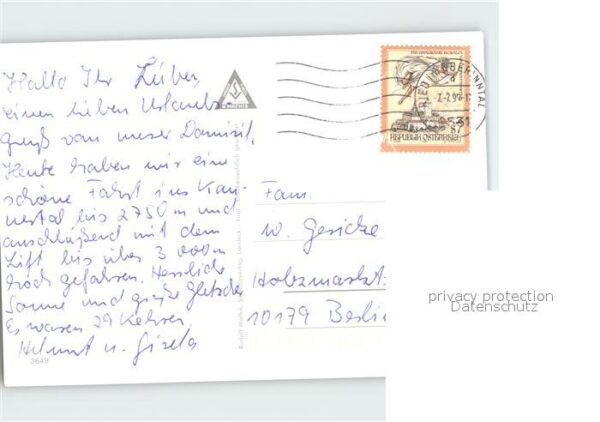 Hallo Ihr Lieben,
einen lieben Urlaubs-
gruß von unser Domizil.
Heute haben wir eine
schöne Fahrt ins Kau-
nertal bis 2750 m und
anschließend mit dem
Lift bis über 3 000 m
hoch gefahren. Herrliche
Sonne und große Gletscher
Es waren 29 Kehren
Helmut u. Gisela
3649
REPUBLIK ÖSTERREICH
S7
6531
Fam.
W. Gericke
Holzmarkt
10179 Berlin
privacy protection
Datenschutz